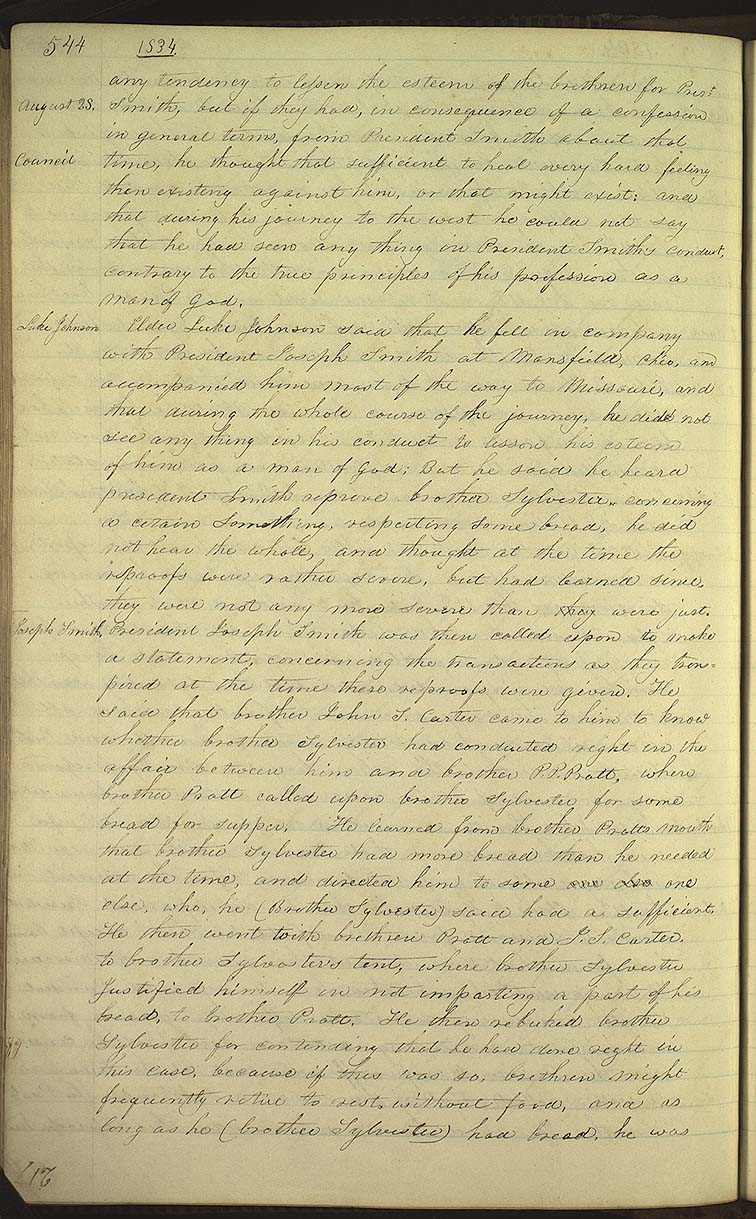 544 1834.
any tendency to lessen the esteem of the brethren for Prest
August 28. Smith, but if they had, in consequence of a confession
in general terms, from President Smith about that
Council time, he thought that sufficient to heal every hard feeling
then existing against him, or that might exist; and
that during his journey to the west he could not say
that he had seen any thing in President Smith's conduct,
contrary to the true principles of his profession as a
man of God.
Luke Johnson Elder Luke Johnson said that he fell in company
with President Joseph Smith at Mansfield, Ohio, and
accompanied him most of the way to Missouri, and
that during the whole course of the journey, he did not
see any thing in his conduct to lisson his esteem
of him as a man of God; But he said he heard
president Smith reprove brother Sylvester, concerning
a certain Something, respecting some bread, he did
not hear the whole, and thought at the time the
reproofs were rather severe, but had learned since,
they were not any more severe than they were just.
Joseph Smith, President Joseph Smith was then called upon to make
a statement, concerning the transactions as they tran=
pired at the time these reproofs were given. He
said that brother John S. Carter came to him to know
whether brother Sylvester had conducted right in the
affair between him and brother P.P. Pratt, where
brother Pratt called upon brother Sylvester for some
bread for supper. He learned from brother Pratts mouth
that brother Sylvester had more bread than he needed
at the time, and directed him to some one
else, who, he (Brother Sylvester) said had a sufficient.
He then went with brethren Pratt and J. S. Carter.
to brother Sylvester's tent, where brother Sylvester
Justified himself in not imparting a part of his
bread, to brother Pratt. He then rebuked brother
Sylvester for contending that he had done right in
this case, because if this was so, brethren might
frequently retire to rest, without food, and as
long as he (brother Sylvester) had bread, he was